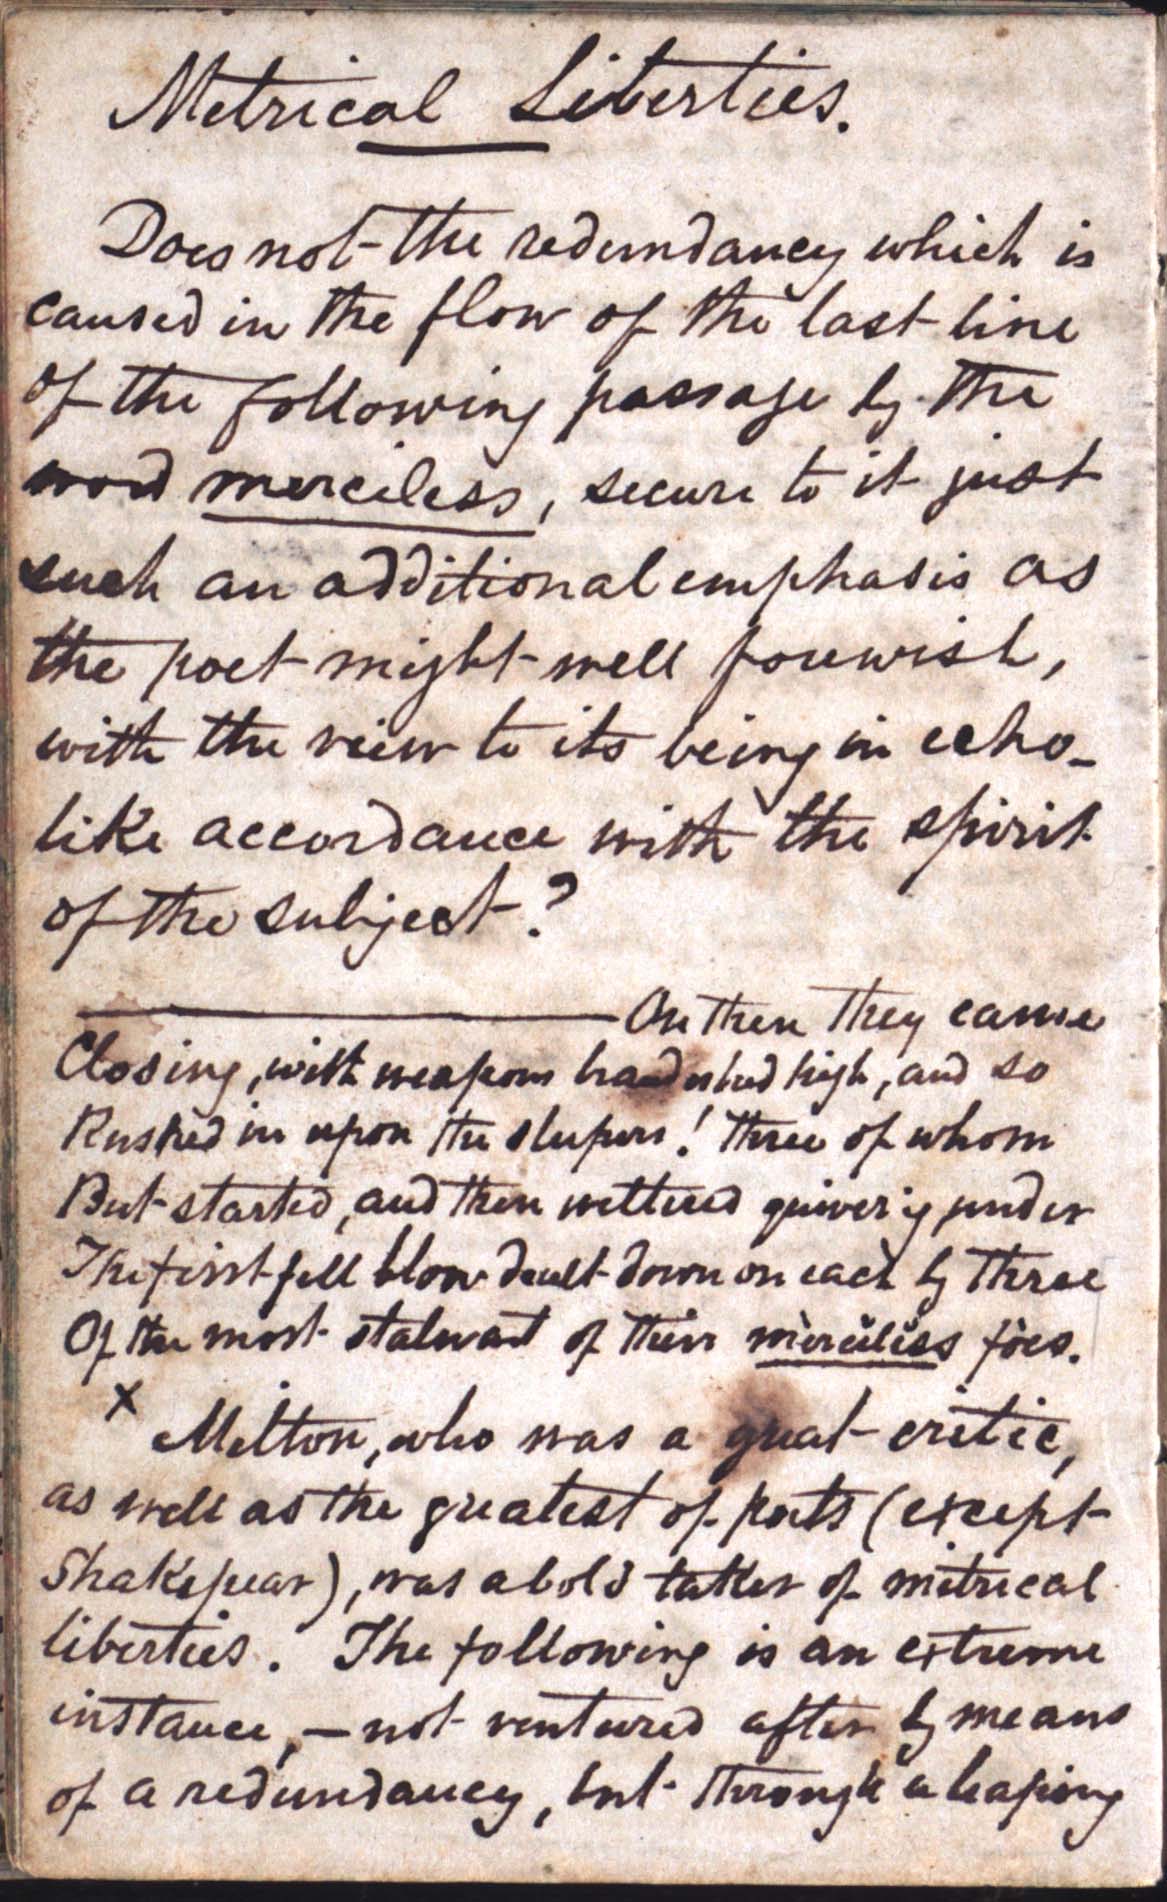 Metrical Liberties.
Does not the redundancy which is
caused in the flow of the last line
of the following passage by the
word merciless, secure to it just
such an additional emphasis as
the poet might well forewish,
with the view to its being in echo-
like accordance with the spirit
of the subject?
On then they came
Closing, with weapons high, and so
Rushed in upon the sleepers! three of whom
But started, and then weltered quivering under
The first fell blow dealt down on each by three
Of the most stalwart of their merciless foes.
x Milton, who was a great critic,
as well as the greatest of poets (except
Shakspear), was a bold taker of metrical
liberties. The following is an extreme
instance, — not ventured after by means
of a redundancy, but through a heaping